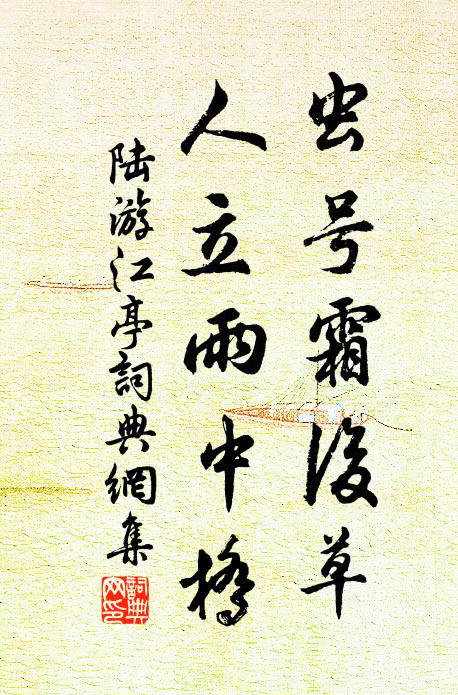 虫号霜後草
人立雨中橋
陆游江亭詞典網集
詞典
网印